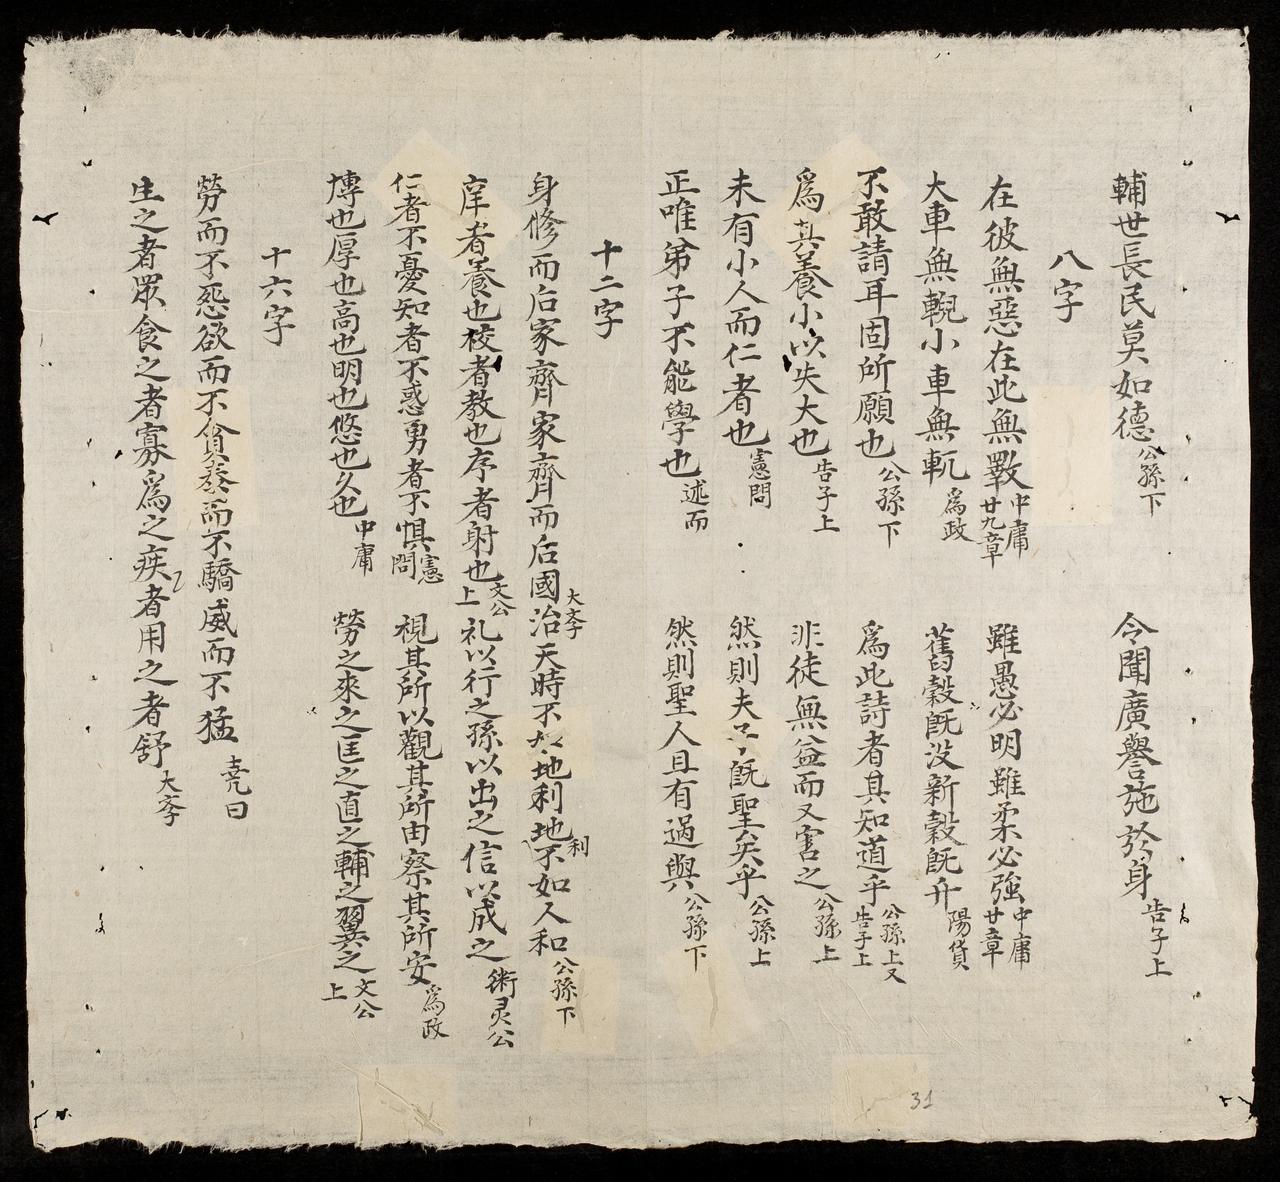 輔世長民莫如德 公孫下 令聞廣譽施於身 告子上
八字
在彼無惡在此無斁 中庸廿九章 雖愚必明雖柔必強 中庸廿章
大車無輗小車無軏 爲政 舊穀旣没新穀旣升 陽貨
不敢請耳固所願也 公孫下 爲此詩者其知道乎 公孫上又告子上
爲其養小以失大也 告子上 非徒無益而又害之 公孫上
未有小人而仁者也 憲問 然則夫子旣聖矣乎 公孫上
正唯弟子不能學也 述而 然則聖人且有過與 公孫下
十二字
身修而后家齊家齊而后國治 大斈 天時不如地利地利不如人和 公孫下
庠者養也校者教也序者射也 文公上 礼以行之孫以出之信以成之 衛灵公
仁者不憂知者不惑勇者不懼 憲問 視其所以觀其所由察其所安 爲政
博也厚也高也明也悠也久也 中庸 勞之來之匡之直之輔之翼之 文公上
十六字
勞而不怨欲而不貪泰而不驕威而不猛 尭曰
生之者眾食之者寡爲之疾者用之者舒 大斈
31